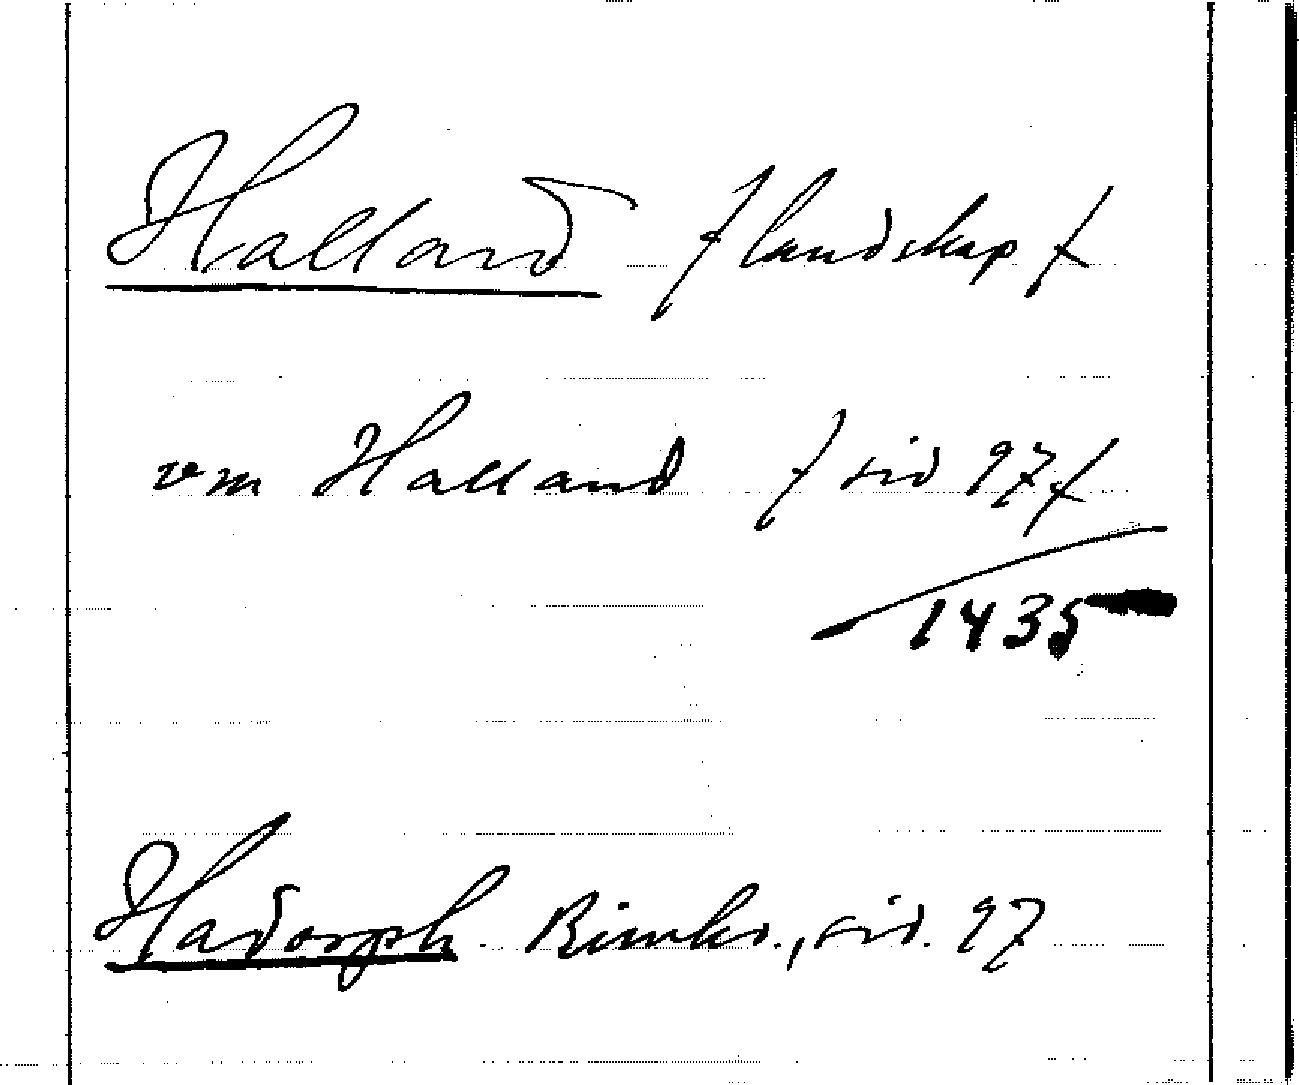 Halland / landskap /
vm Halland / sid 97 /
1435
Hadorph Rimkr., sid. 97